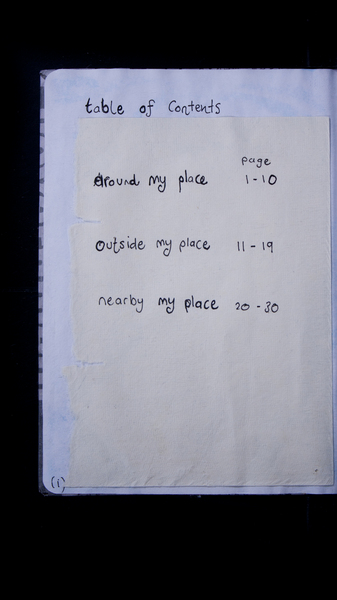 table of Contents
page
Around my place 1-10
outside my place 11-19
nearby my place 20-30
(1)